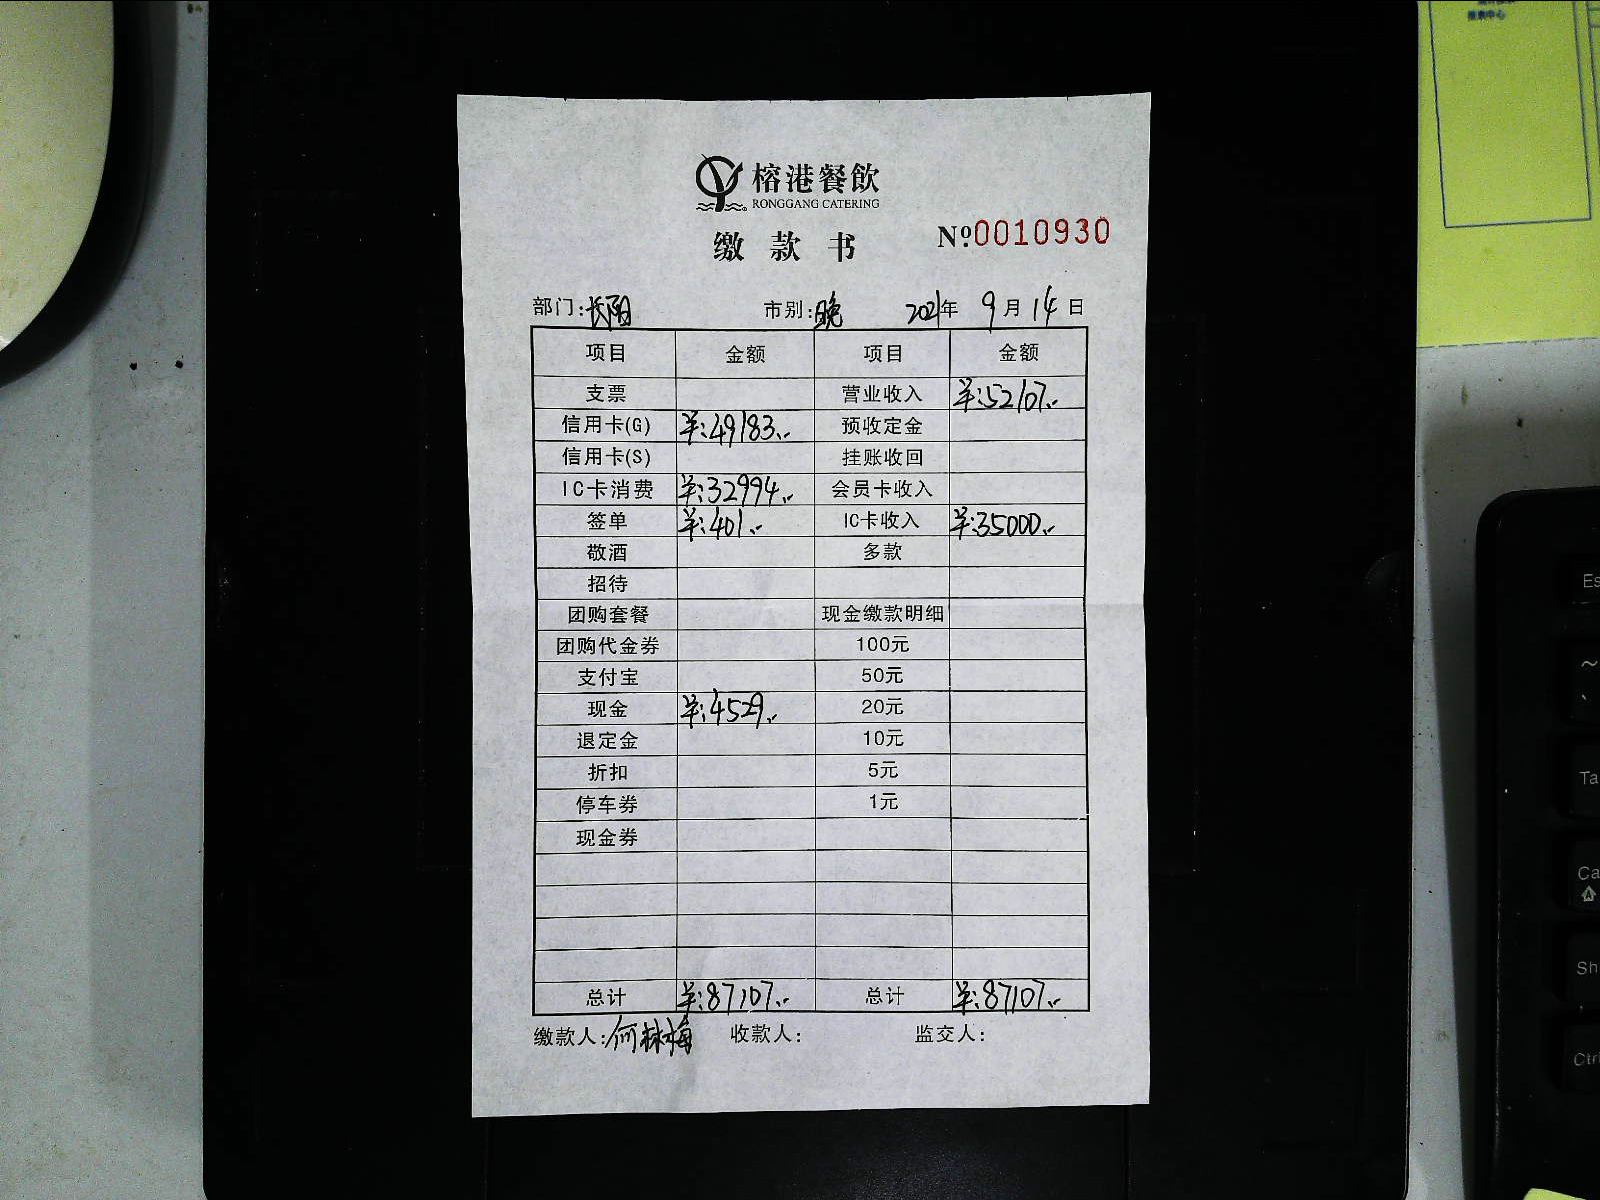 榕港餐飲
RONGGANG CATERING
缴 款 书 Nº:0010930
部门:长阳 市别:晚 2021年 9月14日
项目 金额 项目 金额
支票 营业收入 ¥:52107..
信用卡(G) ¥:49183.. 预收定金
信用卡(S) 挂账收回
IC卡消费 ¥:32994.. 会员卡收入
签单 ¥:401.. IC卡收入 ¥:35000..
敬酒 多款
招待
团购套餐 现金缴款明细
团购代金券 100元
支付宝 50元
现金 ¥:4529.. 20元
退定金 10元
折扣 5元
停车券 1元
现金券
总计 ¥:87107.. 总计 ¥:87107..
缴款人:何林梅 收款人: 监交人:
Es
~
Ta
Ca
Sh
Ctrl